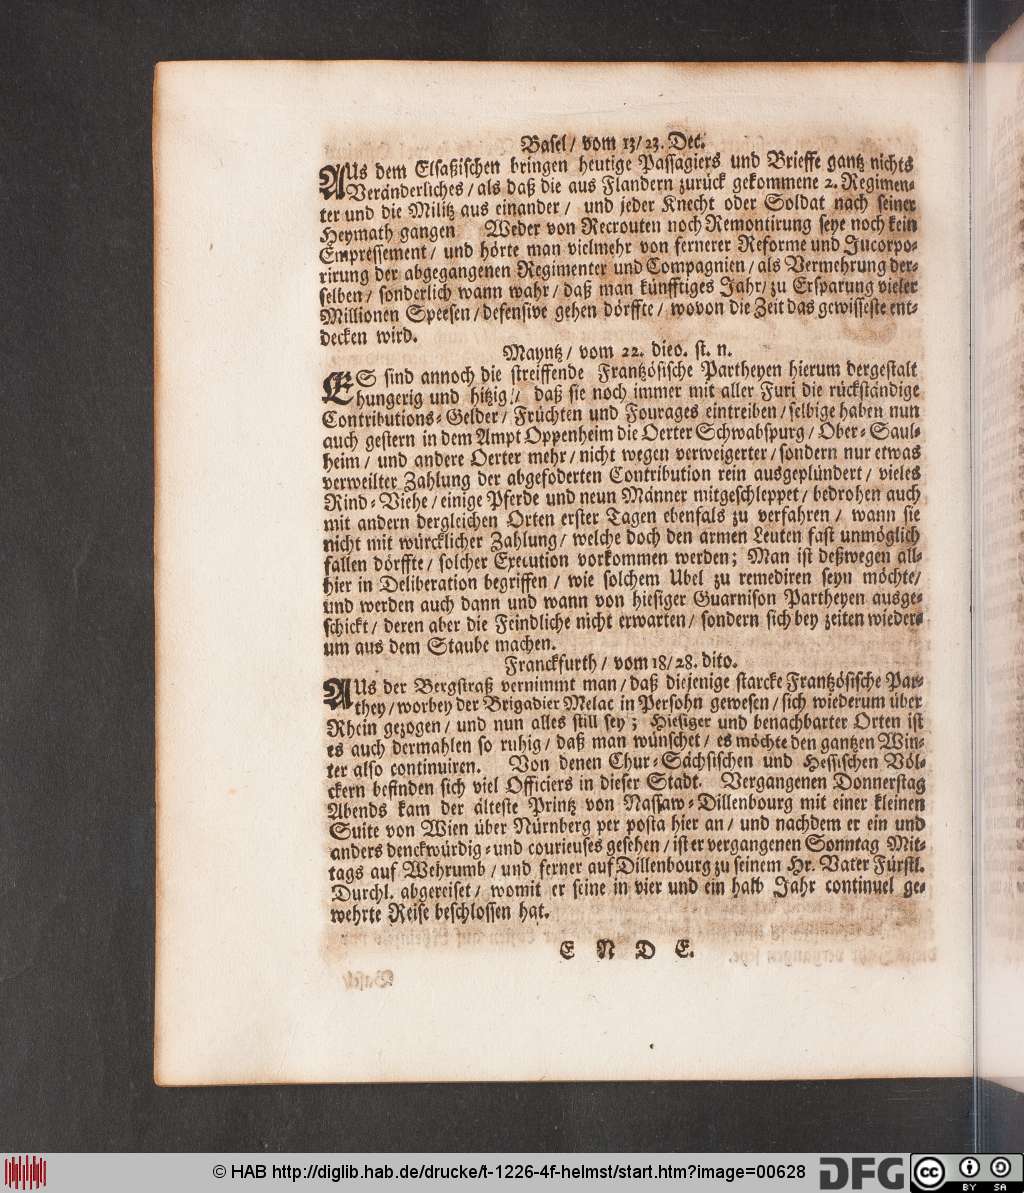 Basel / vom 13/23. Dec.
AUs dem Elsaßischen bringen heutige Passagiers und Brieffe gantz nichts
Veränderliches / als daß die aus Flandern zurück gekommene 2. Regimen-
ter und die Militz aus einander / und jeder Knecht oder Soldat nach seiner
Heymath gangen Weder von Recrouten noch Remontirung seye noch kein
Empressement / und hörte man vielmehr von fernerer Reforme und Jucorpo-
rirung der abgegangenen Regimenter und Compagnien / als Vermehrung der-
selben / sonderlich wann wahr / daß man künfftiges Jahr / zu Ersparung vieler
Millionen Speesen / defensive gehen dörffte / wovon die Zeit das gewisseste ent-
decken wird.
Mayntz / vom 22. dieo. st. n.
ES sind annoch die streiffende Frantzösische Partheyen hierum dergestalt
hungerig und hitzig / daß sie noch immer mit aller Furi die rückständige
Contributions-Gelder / Früchten und Fourages eintreiben / selbige haben nun
auch gestern in dem Ampt Oppenheim die Oerter Schwabspurg / Ober-Saul-
heim / und andere Oerter mehr / nicht wegen verweigerter / sondern nur etwas
verweilter Zahlung der abgefoderten Contribution rein ausgeplündert / vieles
Rind-Viehe / einige Pferde und neun Männer mitgeschleppet / bedrohen auch
mit andern dergleichen Orten erster Tagen ebenfals zu verfahren / wann sie
nicht mit würcklicher Zahlung / welche doch den armen Leuten fast unmöglich
fallen dörffte / solcher Execution vorkommen werden; Man ist deßwegen all-
hier in Deliberation begriffen / wie solchem Ubel zu remediren seyn möchte /
und werden auch dann und wann von hiesiger Guarnison Partheyen ausge-
schickt / deren aber die Feindliche nicht erwarten / sondern sich bey zeiten wieder-
um aus dem Staube machen.
Franckfurth / vom 18/28. dito.
AUs der Bergstraß vernimmt man / daß diejenige starcke Frantzösische Par-
they / worbey der Brigadier Melac in Persohn gewesen / sich wiederum über
Rhein gezogen / und nun alles still sey; Hiesiger und benachbarter Orten ist
es auch dermahlen so ruhig / daß man wünschet / es möchte den gantzen Win-
ter also continuiren. Von denen Chur-Sächsischen und Hessischen Völ-
ckern befinden sich viel Officiers in dieser Stadt. Vergangenen Donnerstag
Abends kam der älteste Printz von Nassaw-Dillenbourg mit einer kleinen
Suite von Wien über Nürnberg per posta hier an / und nachdem er ein und
anders denckwürdig- und courieuses gesehen / ist er vergangenen Sonntag Mit-
tags auf Wehrumb / und ferner auf Dillenbourg zu seinem Hr. Vater Fürstl.
Durchl. abgereiset / womit er seine in vier und ein halb Jahr continuel ge-
wehrte Reise beschlossen hat.
E N D E.
© HAB http://diglib.hab.de/drucke/t-1226-4f-helmst/start.htm?image=00628
DFG
cc
BY SA